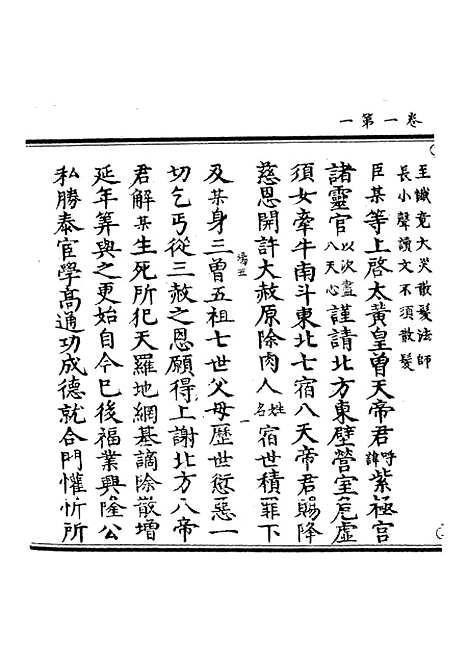 卷一第一
至懺竟大哭散髮法師
長小聲讀文不須散髮
臣某等上啓太黃皇曾天帝君呼諱紫極宮
諸靈官以次盡八天心謹請北方東壁營室危虛
須女牽牛南斗東北七宿八天帝君賜降
慈恩開許大赦原除肉人姓名宿世積罪下
五 一
及某身三曾五祖七世父母歷世愆惡一
切乞丐從三赦之恩願得上謝北方八帝
君解某生死所犯天羅地網基謫除散增
延年筭與之更始自今已後福業興隆公
私勝泰官學高通功成德就合門懽忻所